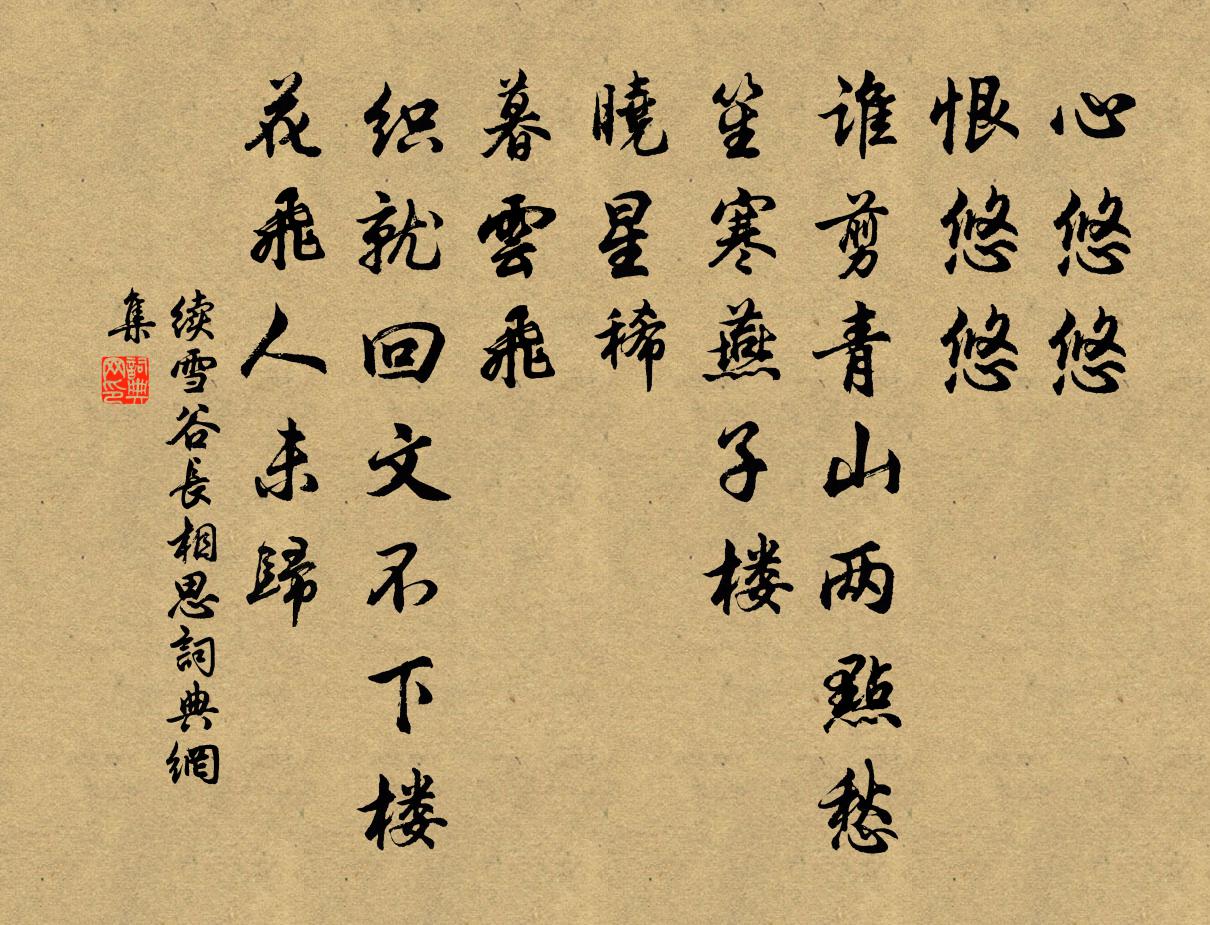 心悠悠
恨悠悠
谁剪青山两點愁
笙寒燕子楼
曉星稀
暮雲飛
织就回文不下楼
花飛人未歸
续雪谷長相思詞典網
集
詞典
网印